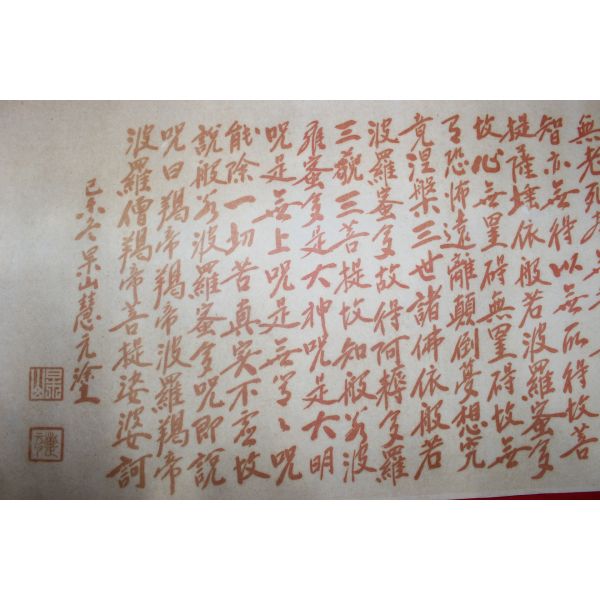 無老死
智亦無得以無所得故菩
提薩埵依般若波羅蜜多
故心無罣礙無罣礙故無
有恐怖遠離顛倒夢想究
竟涅槃三世諸佛依般若
波羅蜜多故得阿耨多羅
三藐三菩提故知般若波
羅蜜多是大神呪是大明
呪是無上呪是無等々呪
能除一切苦真實不虛故
說般若波羅蜜多呪即說
呪曰羯帝羯帝波羅羯帝
波羅僧羯帝菩提娑婆訶
己未冬杲山慧元塗